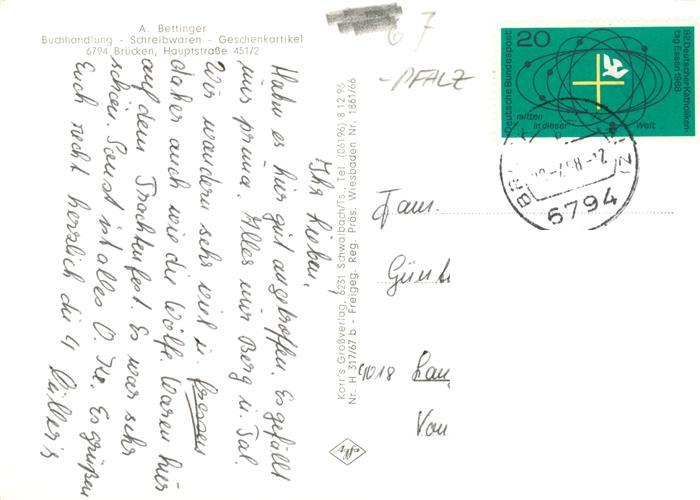 A. Bettinger
Buchhandlung - Schreibwaren - Geschenkartikel
6794 Brücken, Hauptstraße 451/2
Ihr Lieben,
Haben es hier gut angetroffen. Es gefällt
uns prima. Alles nur Berg u. Tal.
Wir wandern sehr viel u. fressen
daher auch wie die Wölfe. Waren hier
auf dem Trachtenfest. Es war sehr
schön. Sonst ist alles O. Ke. Es grüßen
Euch recht herzlich die 4 Müller's
Korr's Großverlag, 6231 Schwalbach/Ts., Tel. (06196) 8 12 95
Nr. H 317/67 b - Freigeg. Reg. Präs. Wiesbaden Nr. 1861/66
67
-PFALZ
20
Deutsche Bundespost
82. Deutscher Katholiken
tag Essen 1968
mitten
in dieser
Welt
6794
Fam.
Günt
4018 Lan
Von